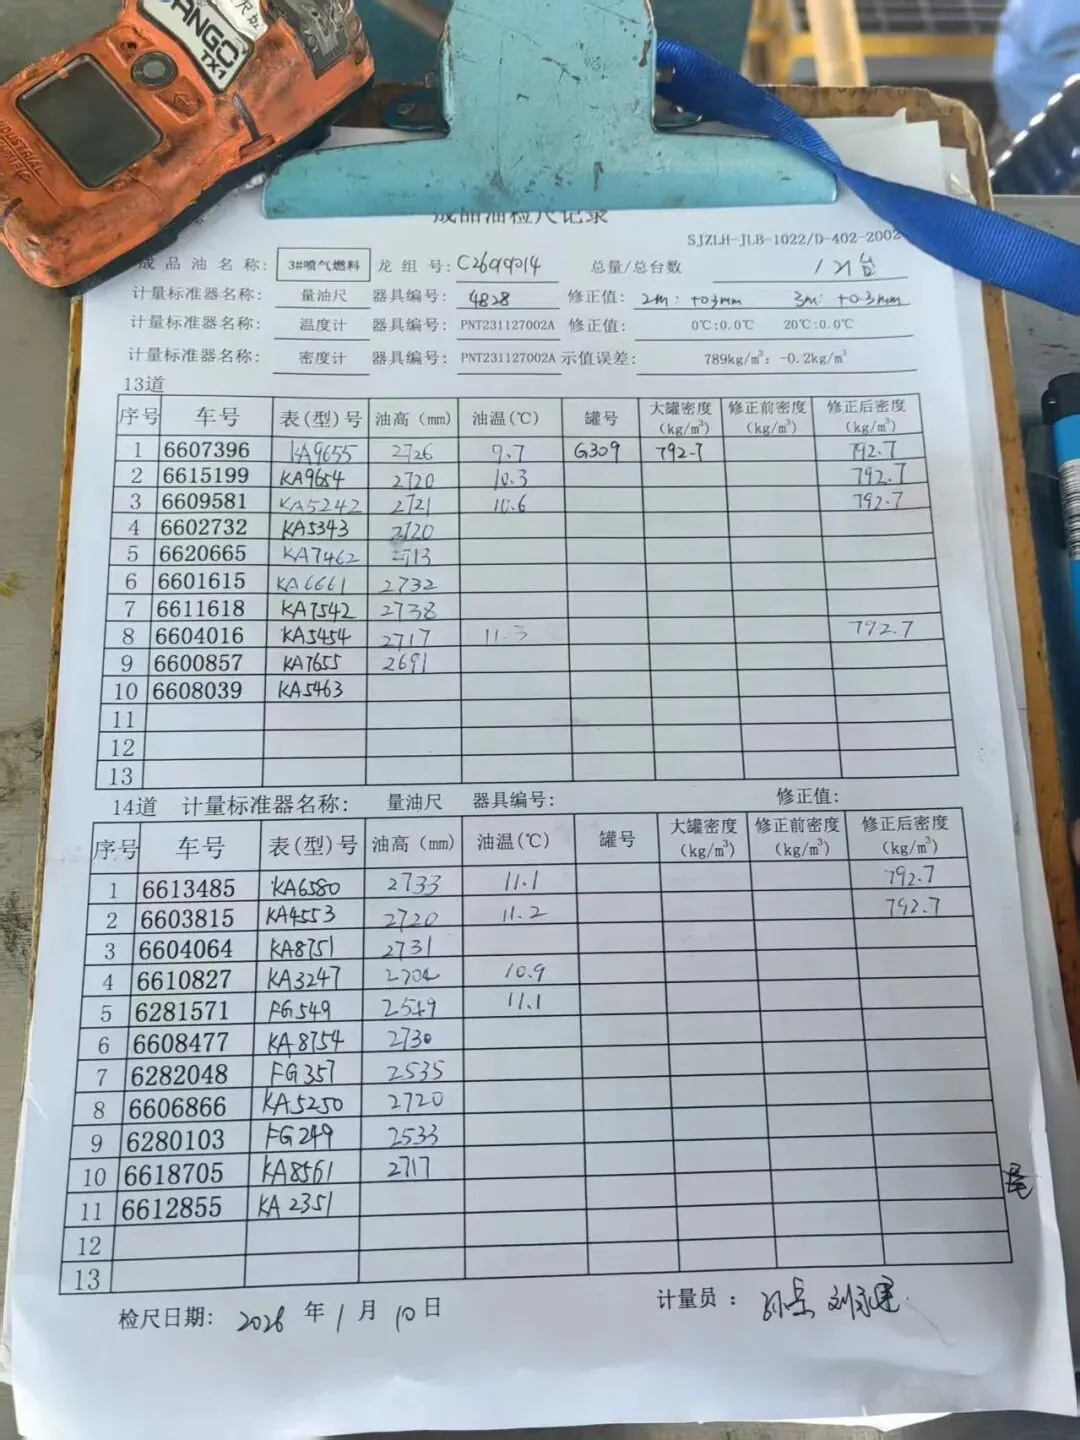 ANGO
TX1
INDUSTRIAL
成品油检尺记录
SJZLH-JLB-1022/D-402-2002
成品油名称: 3#喷气燃料 龙组号: 总量/总台数 / 21台
计量标准器名称: 量油尺 器具编号: 4828 修正值: 2m: +0.3mm 3m: +0.3mm
计量标准器名称: 温度计 器具编号: PNT231127002A 修正值: 0℃:0.0℃ 20℃:0.0℃
计量标准器名称: 密度计 器具编号: PNT231127002A 示值误差: 789kg/m³: -0.2kg/m³
13道
序号 车号 表(型)号 油高(mm) 油温(℃) 罐号 大罐密度(kg/m³) 修正前密度(kg/m³) 修正后密度(kg/m³)
1 6607396 KA9655 2726 9.7 G309 792.7 792.7
2 6615199 KA9654 2720 10.3 792.7
3 6609581 KA5242 2721 10.6 792.7
4 6602732 KA5343 2720
5 6620665 KA7462 2713
6 6601615 KA6661 2732
7 6611618 KA7542 2738
8 6604016 KA5454 2717 11.3 792.7
9 6600857 KA7655 2691
10 6608039 KA5463
11
12
13
14道 计量标准器名称: 量油尺 器具编号: 修正值:
序号 车号 表(型)号 油高(mm) 油温(℃) 罐号 大罐密度(kg/m³) 修正前密度(kg/m³) 修正后密度(kg/m³)
1 6613485 KA6580 2733 11.1 792.7
2 6603815 KA4553 2720 11.2 792.7
3 6604064 KA8751 2731
4 6610827 KA3247 2704 10.9
5 6281571 FG549 2549 11.1
6 6608477 KA8754 2730
7 6282048 FG357 2535
8 6606866 KA5250 2720
9 6280103 FG249 2533
10 6618705 KA8561 2717
尾
11 6612855 KA2351
12
13
检尺日期: 2026年1月10日 计量员: